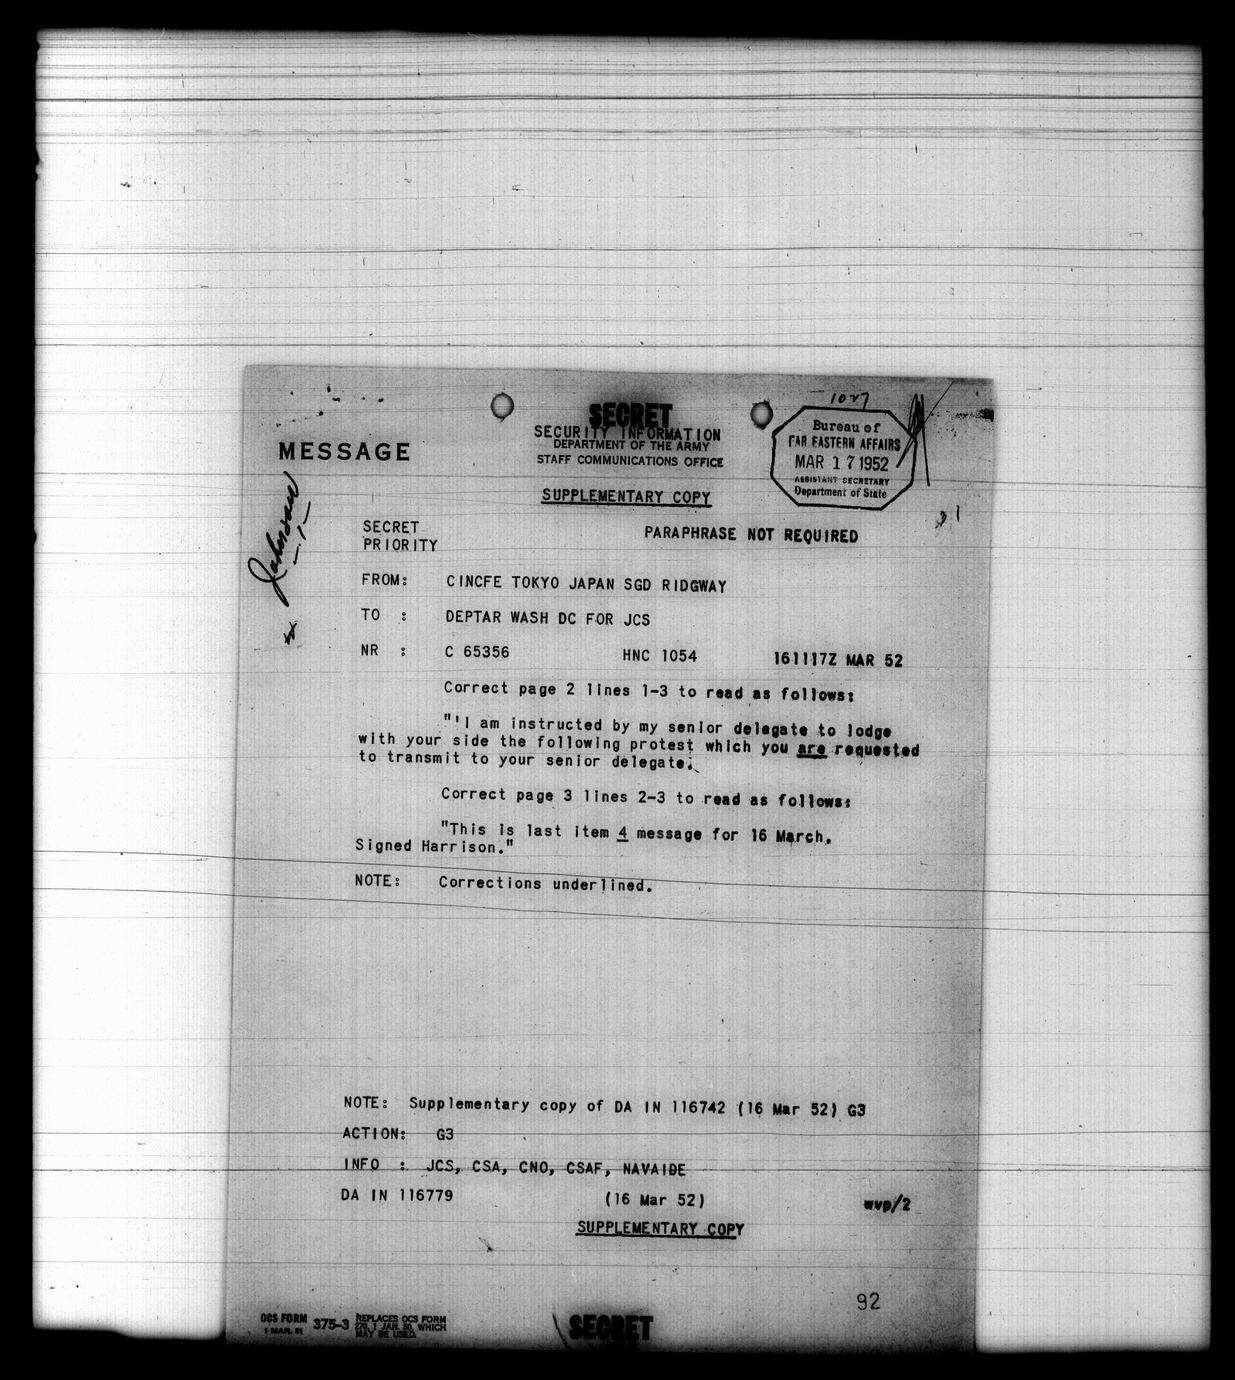 1027
SECRET
SECURITY INFORMATION
DEPARTMENT OF THE ARMY
STAFF COMMUNICATIONS OFFICE
MESSAGE
Bureau of
FAR EASTERN AFFAIRS
MAR 17 1952
ASSISTANT SECRETARY
Department of State
SUPPLEMENTARY COPY
SECRET
PRIORITY
PARAPHRASE NOT REQUIRED
FROM: CINCFE TOKYO JAPAN SGD RIDGWAY
TO : DEPTAR WASH DC FOR JCS
NR : C 65356 HNC 1054 161117Z MAR 52
Correct page 2 lines 1-3 to read as follows:
"'I am instructed by my senior delegate to lodge
with your side the following protest which you are requested
to transmit to your senior delegate:
Correct page 3 lines 2-3 to read as follows:
"This is last item 4 message for 16 March.
Signed Harrison."
NOTE: Corrections underlined.
NOTE: Supplementary copy of DA IN 116742 (16 Mar 52) G3
ACTION: G3
INFO : JCS, CSA, CNO, CSAF, NAVAIDE
DA IN 116779 (16 Mar 52) wvp/2
SUPPLEMENTARY COPY
92
OCS FORM 375-3 REPLACES OCS FORM
1 MAR. 51 270, 1 JAN. 50, WHICH
MAY BE USED.
SECRET